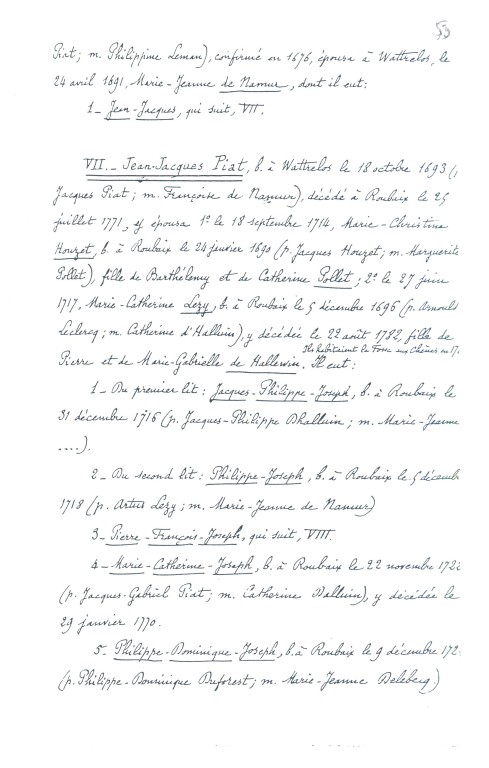 53
Piat ; m. Philippine Leman), confirmé en 1676, épousa à Wattrelos, le
24 avril 1691, Marie-Jeanne de Namur, dont il eut :
1_ Jean-Jacques, qui suit, VII.
VII._ Jean-Jacques Piat, b. à Wattrelos le 18 octobre 1693 (
Jacques Piat ; m. Françoise de Namur), décédé à Roubaix le 25
juillet 1771, y épousa 1º le 18 septembre 1714, Marie-Christine
Houzet, b. à Roubaix le 24 janvier 1690 (p. Jacques Houzet ; m. Marguerite
Pollet), fille de Barthélemy et de Catherine Pollet ; 2º le 27 juin
1717, Marie-Catherine Lezy, b. à Roubaix le 5 décembre 1696 (p. Arnould
Leclercq ; m. Catherine d'Halluin), y décédée le 22 août 1782, fille de
Ils habitaient le Fonc aux Chênes en 17
Pierre et de Marie-Gabrielle de Hallewin. Il eut :
1_ Du premier lit : Jacques-Philippe-Joseph, b. à Roubaix le
31 décembre 1716 (p. Jacques-Philippe Dhalluin ; m. Marie-Jeanne
....).
2_ Du second lit : Philippe-Joseph, b. à Roubaix le 5 décemb
1718 (p. Artus Lezy ; m. Marie-Jeanne de Namur)
3_ Pierre-François-Joseph, qui suit, VIII.
4_ Marie-Catherine-Joseph, b. à Roubaix le 22 novembre 172
(p. Jacques-Gabriel Piat ; m. Catherine Dalluin), y décédée le
29 janvier 1770.
5. Philippe-Dominique-Joseph, b. à Roubaix le 9 décembre 172
(p. Philippe-Dominique Duforest ; m. Marie-Jeanne Delebecq.)